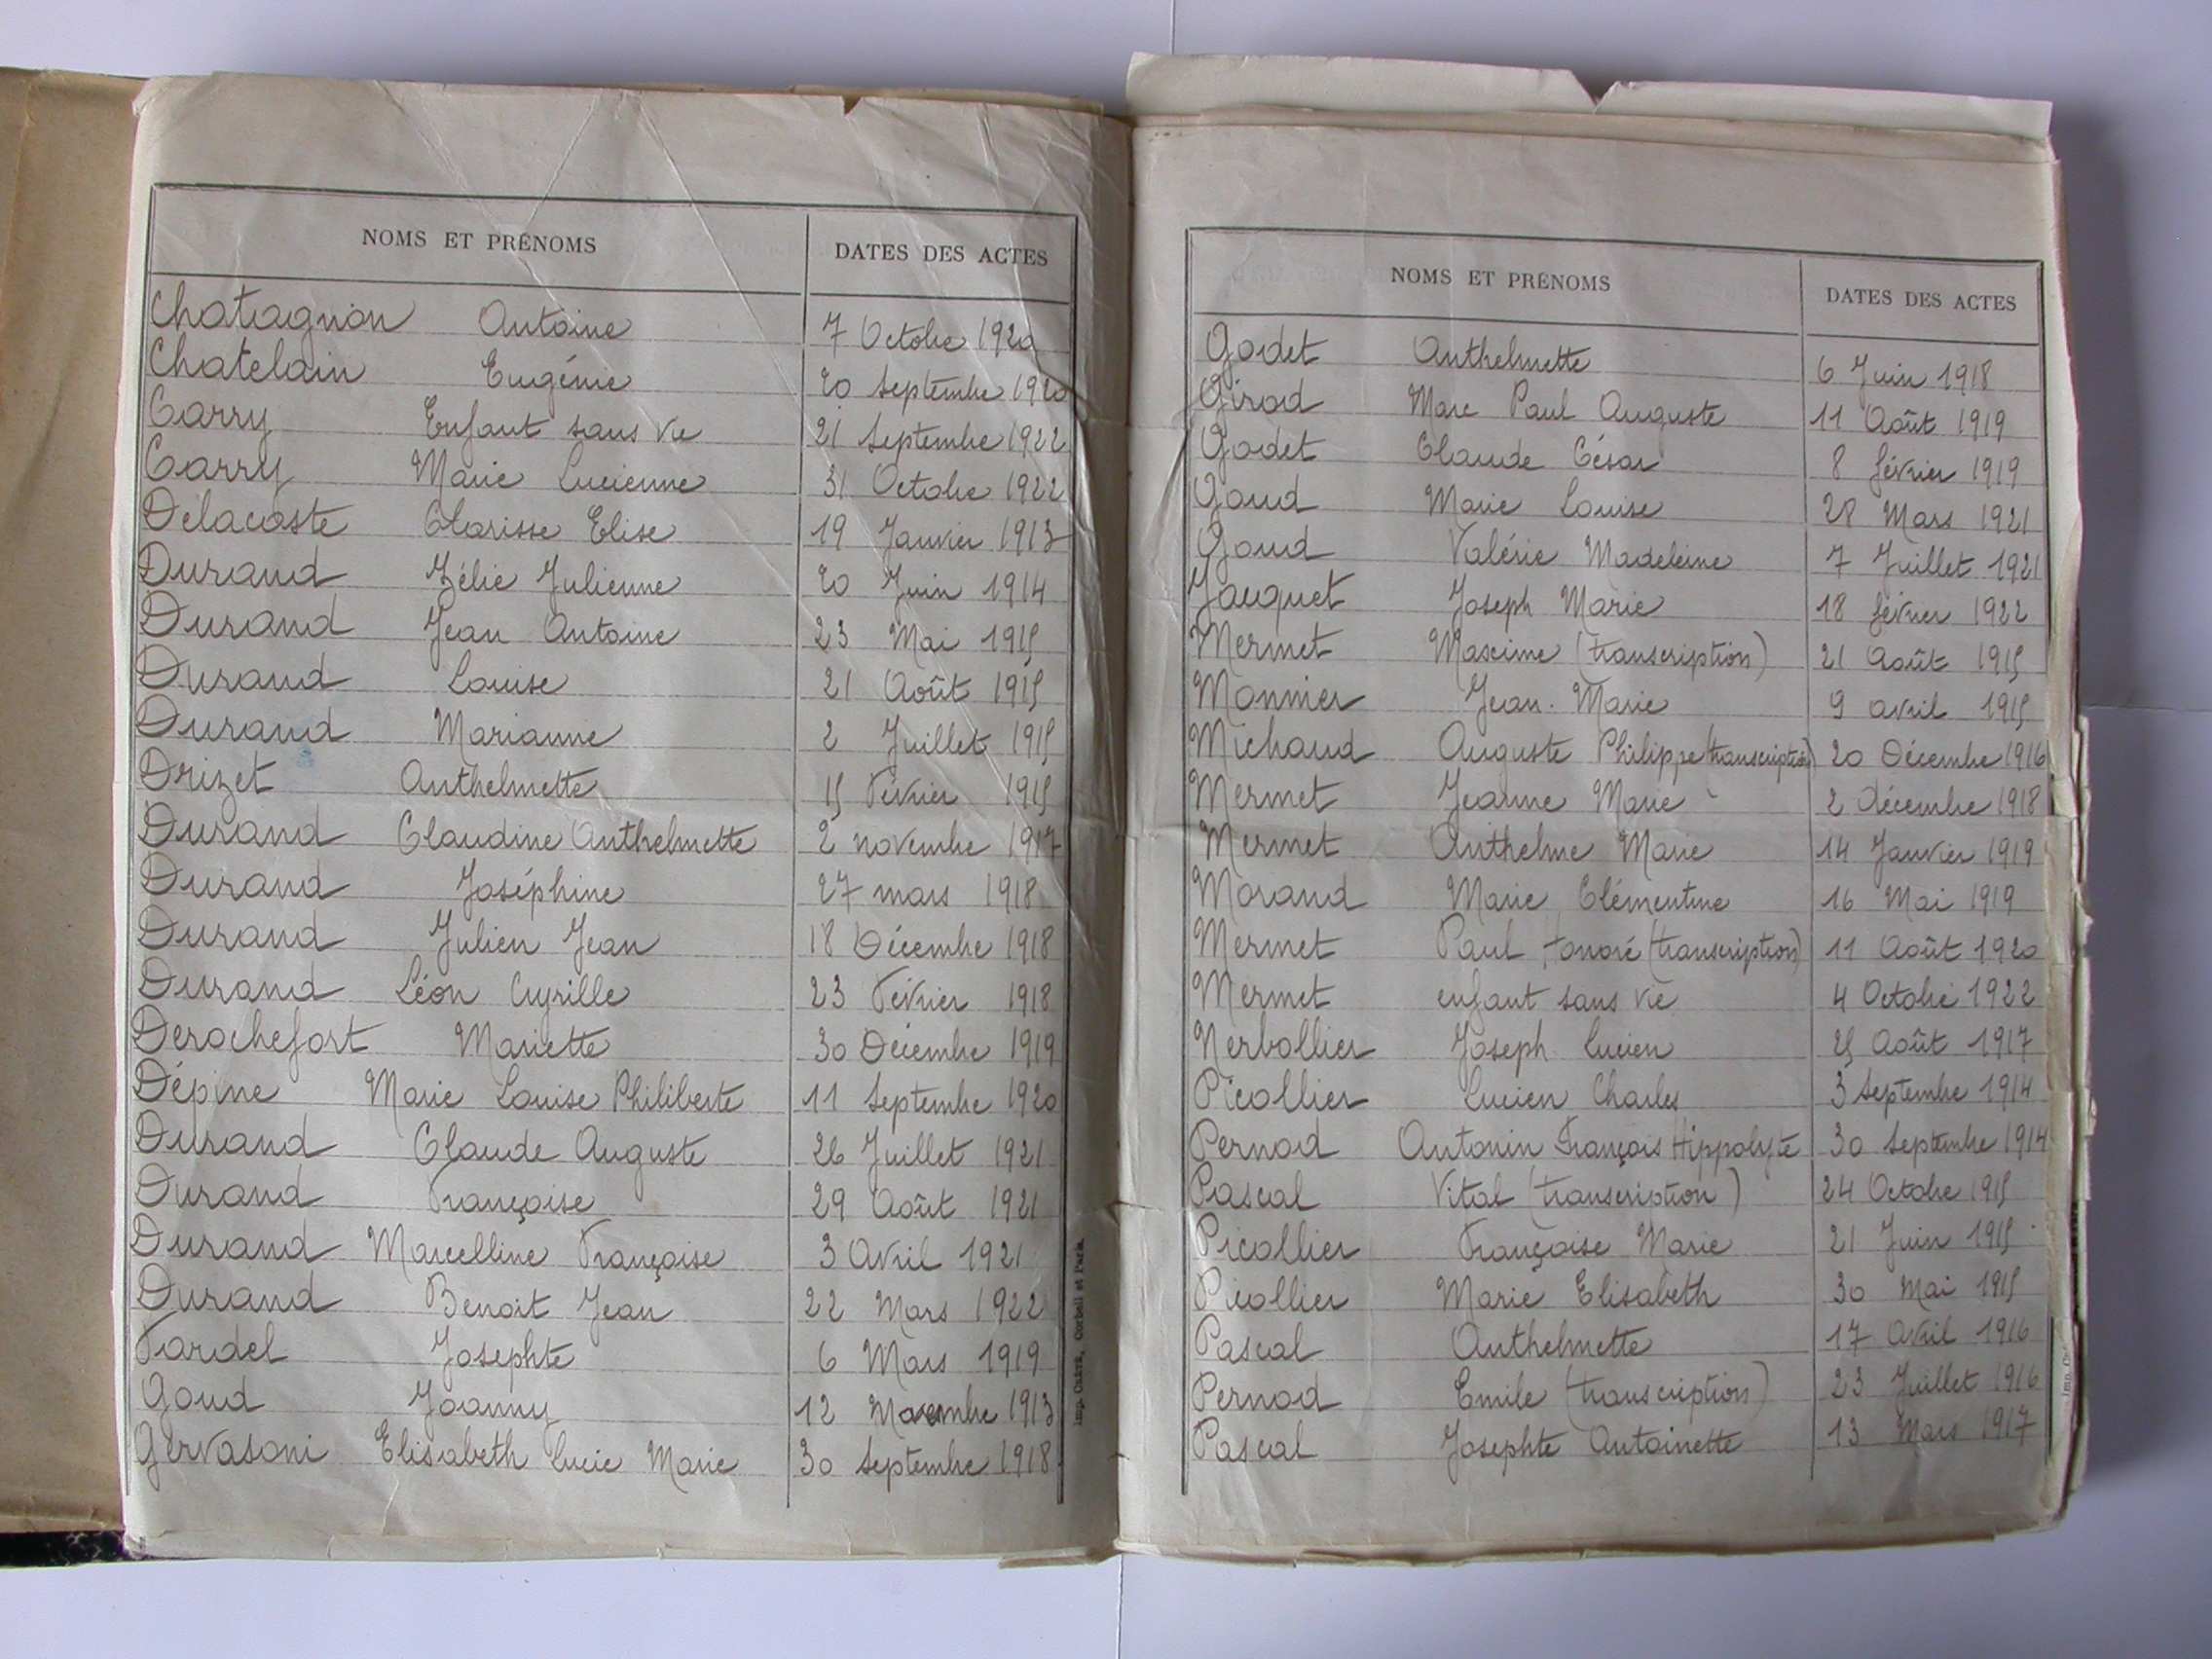 NOMS ET PRÉNOMS DATES DES ACTES
Chatagnon Antoine 7 Octobre 1920
Chatelain Eugénie 20 Septembre 1920
Carry Enfant sans vie 21 Septembre 1922
Carry Marie Lucienne 31 Octobre 1922
Delacoste Clarisse Elise 19 Janvier 1913
Durand Zélie Julienne 20 Juin 1914
Durand Jean Antoine 23 Mai 1915
Durand Louise 21 Août 1915
Durand Marianne 2 Juillet 1915
Drizet Anthelmette 15 Février 1915
Durand Claudine Anthelmette 2 novembre 1917
Durand Joséphine 27 mars 1918
Durand Julien Jean 18 Décembre 1918
Durand Léon Cyrille 23 Février 1918
Derochefort Mariette 30 Décembre 1919
Dépine Marie Louise Philiberte 11 Septembre 1920
Durand Claude Auguste 26 Juillet 1921
Durand Françoise 29 Août 1921
Durand Marcelline Françoise 3 Avril 1921
Durand Benoit Jean 22 Mars 1922
Fardel Josephte 6 Mars 1919
Goud Joanny 12 Novembre 1913
Gervasoni Elisabeth Lucie Marie 30 Septembre 1918
Corbeil et Paris.
NOMS ET PRÉNOMS DATES DES ACTES
Godet Anthelmette 6 Juin 1918
Girod Marc Paul Auguste 11 Août 1919
Godet Claude César 8 février 1919
Goud Marie Louise 28 Mars 1921
Goud Valérie Madeleine 7 Juillet 1921
Jacquet Joseph Marie 18 février 1922
Mermet Maxime (transcription) 21 Août 1915
Monnier Jean-Marie 9 avril 1915
Michaud Auguste Philippe (transcription) 20 Décembre 1916
Mermet Jeanne Marie 2 décembre 1918
Mermet Anthelme Marie 14 Janvier 1919
Morand Marie Clémentine 16 Mai 1919
Mermet Paul Honoré (transcription) 11 Août 1920
Mermet enfant sans vie 4 Octobre 1922
Nerbollier Joseph Lucien 25 Août 1917
Picollier Lucien Charles 3 Septembre 1914
Pernod Antonin François Hippolyte 30 Septembre 1914
Pascal Vital (transcription) 24 Octobre 1915
Picollier Françoise Marie 21 Juin 1915
Picollier Marie Elisabeth 30 Mai 1915
Pascal Anthelmette 17 Avril 1916
Pernod Emile (transcription) 23 Juillet 1916
Pascal Josephte Antoinette 13 Mars 1917